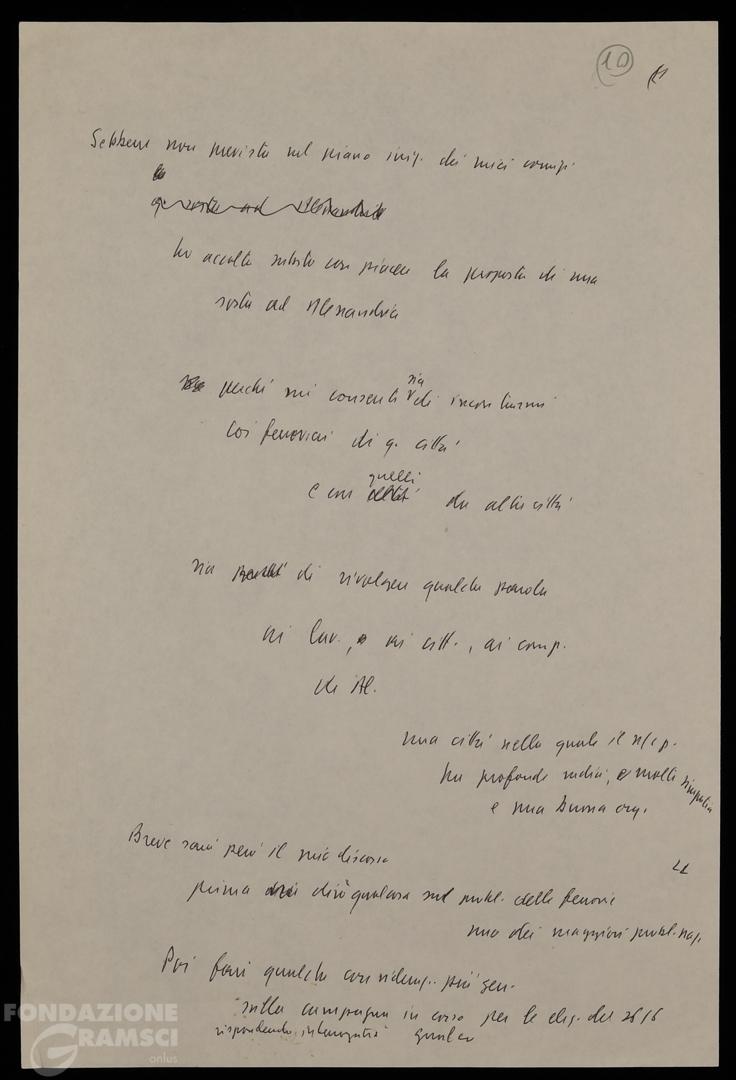 10
Sebbene non prevista nel piano iniz. dei miei comizi
la
sosta ad Alessandria
ho accolto subito con piacere la proposta di una
sosta ad Alessandria
perché mi consenti sia di incontrarmi
coi ferrovieri di q. città
e con quelli di altre città
sia di rivolgere qualche parola
ai lav., ai citt., ai comp.
di Al.
una città nella quale il n/ p.
ha profonde radici, e molte simpatie
e una buona org.
Breve sarà però il mio discorso
prima dirò qualcosa sul probl. delle ferrovie
uno dei maggiori probl. naz.
Poi farò qualche consideraz. più gen.
sulla campagna in corso per le elez. del 20/6
rispondendo interrogativi
FONDAZIONE
GRAMSCI
onlus